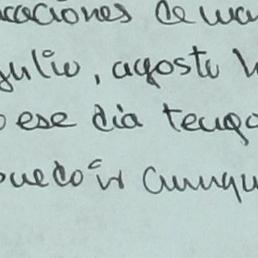 caciones de ma
julio, agosto
ese dia tengo
puedo ir aunqu